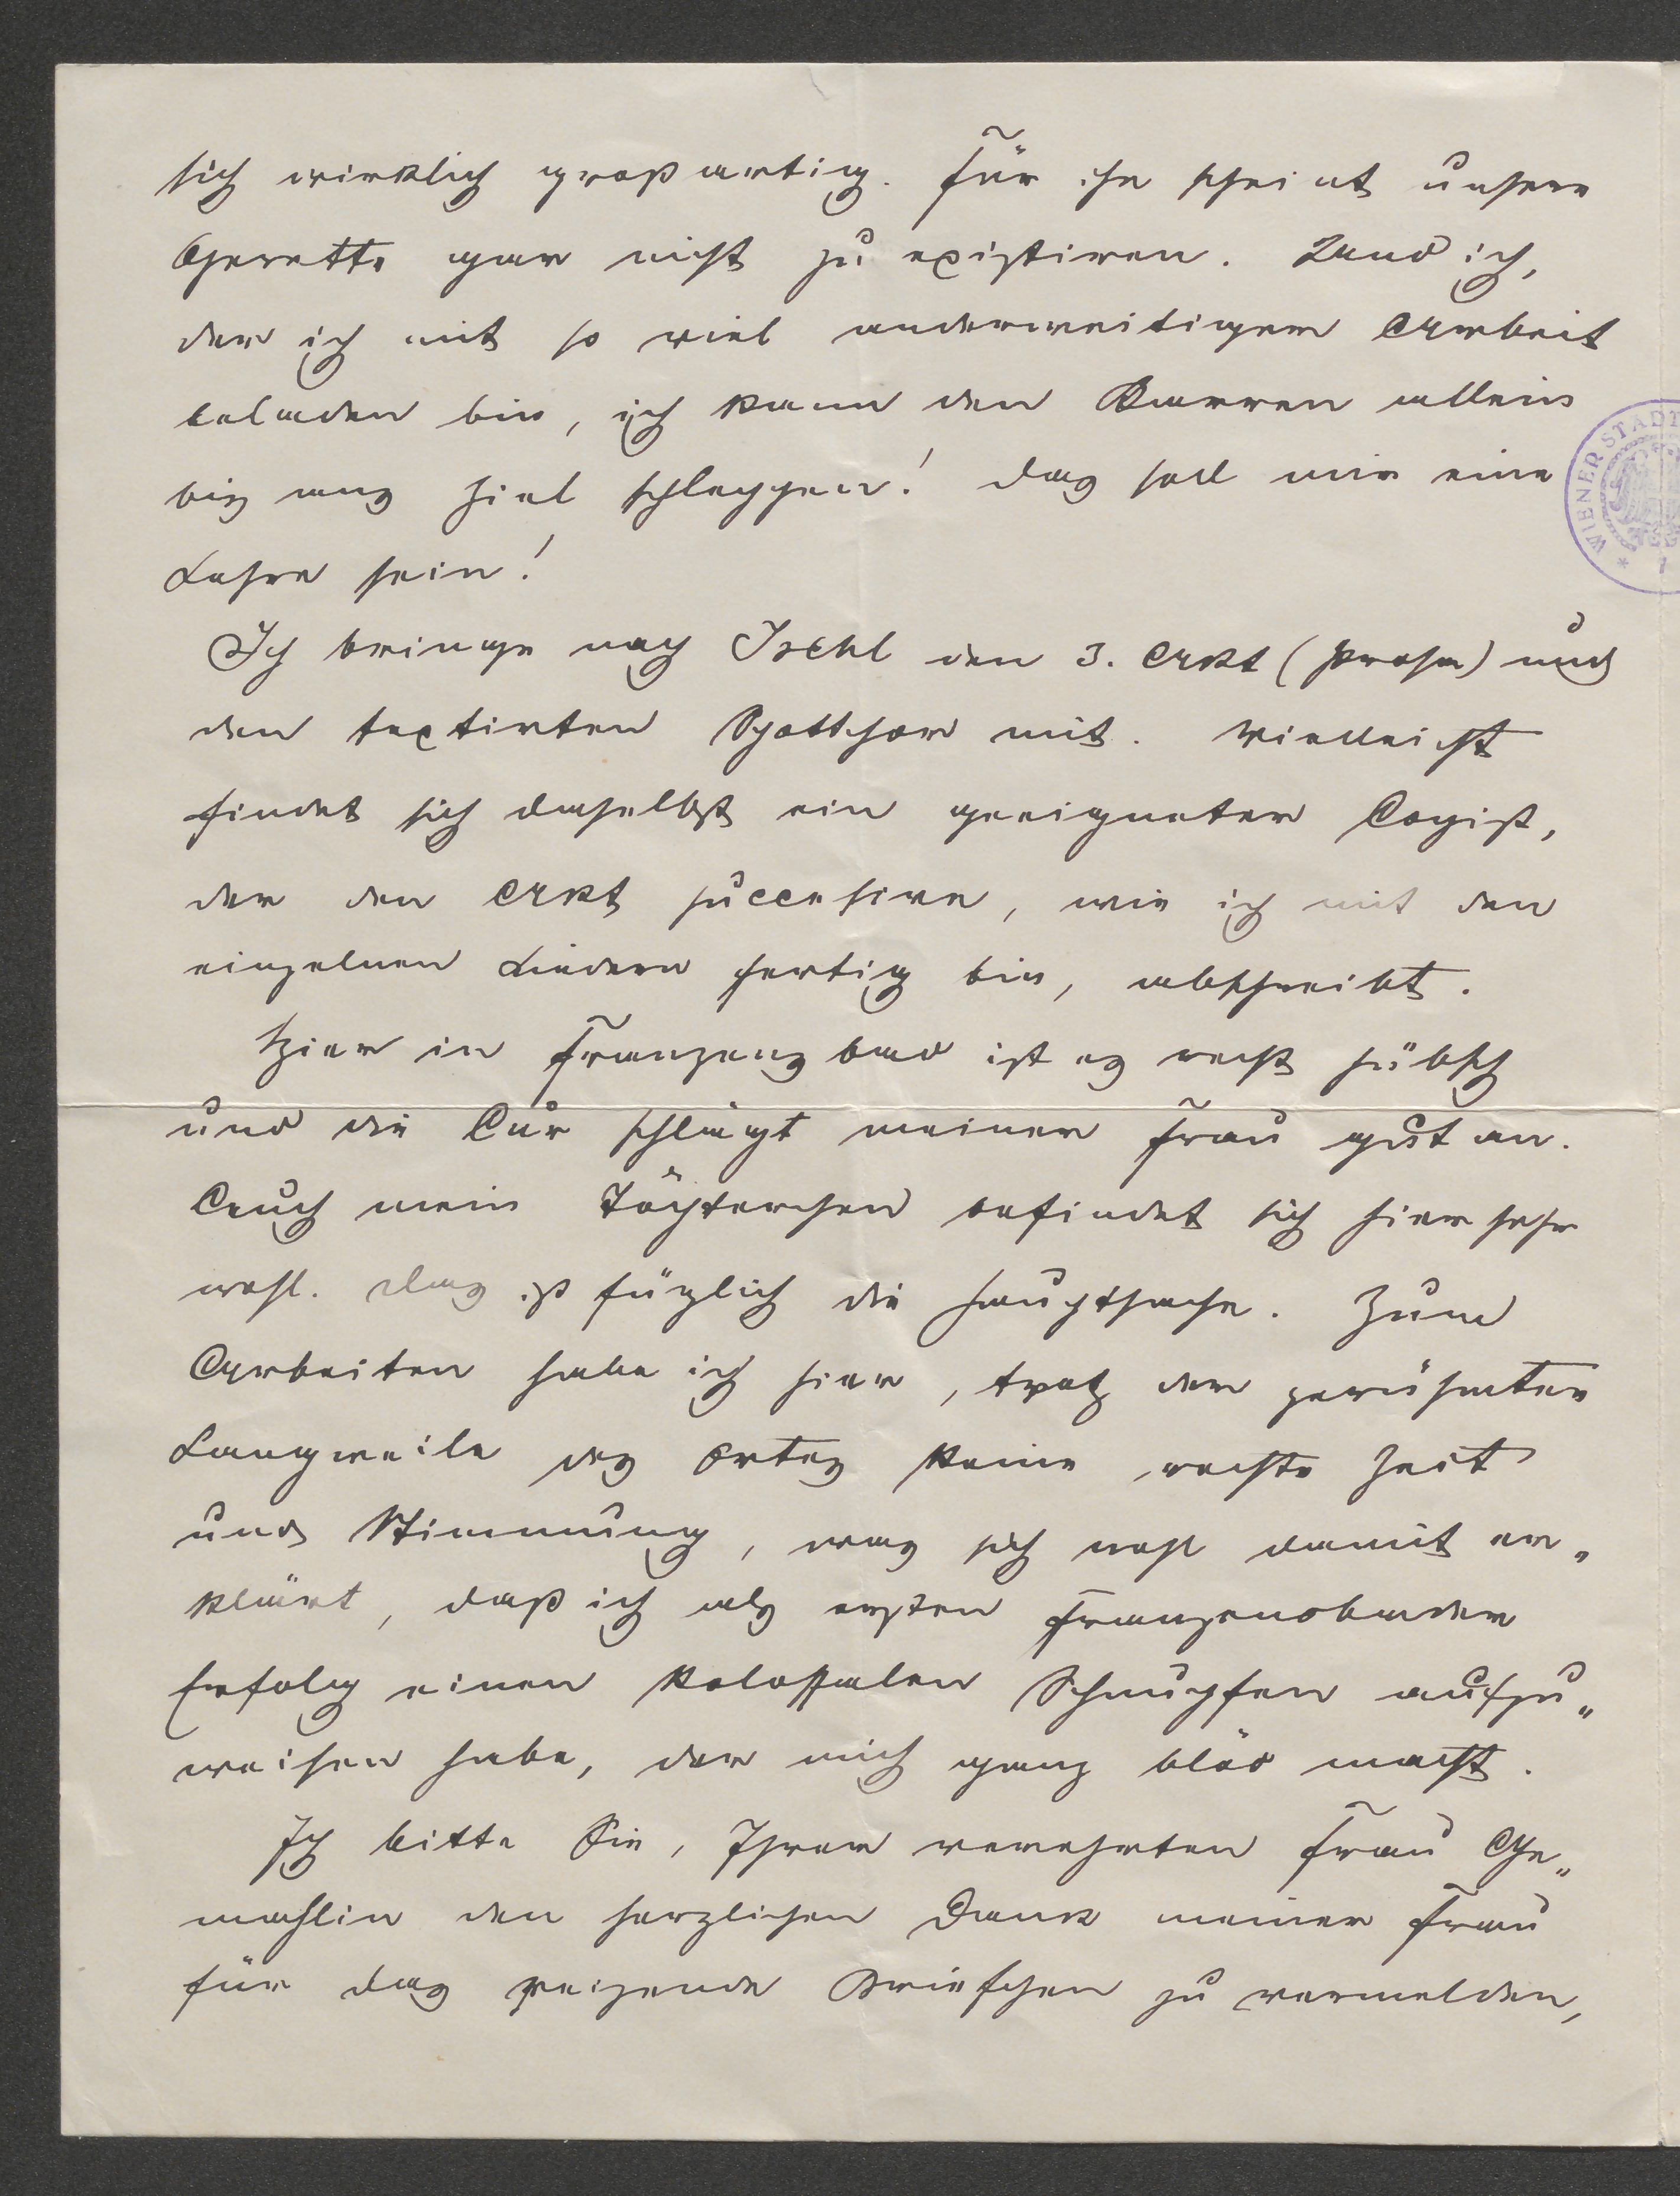 sich wirklich großartig. Für ihn scheint unsere
Operette gar nicht zu existiren. Und ich,
der ich mit so viel anderweitiger Arbeit
beladen bin, ich kann den Karren allein
bis ans Ziel schleppen! Das soll mir eine
Lehre sein!
Ich bringe nach Ischl den 3. Akt (Prosa) und
den textirten Spottchor mit. Vielleicht
findet sich daselbst ein geeigneter Copist,
der den Akt successive, wie ich mit den
einzelnen Liedern fertig bin, abschreibt.
Hier in Franzensbad ist es recht hübsch
und die Cur schlägt meiner Frau gut an.
Auch mein Töchterchen befindet sich hier sehr
wohl. Das ist füglich die Hauptsache. Zum
Arbeiten habe ich hier, trotz der gerühmten
Langweile des Ortes keine rechte Zeit
und Stimmung, was sich wohl damit er„
klärt, daß ich als ersten Franzensbader
Erfolg einen kolossalen Schnupfen aufzu„
weisen habe, der mich ganz blöd macht.
Ich bitte Sie, Ihrer verehrten Frau Ge„
mahlin den herzlichen Dank meiner Frau
für das reizende Briefchen zu vermelden,
WIENER STADT